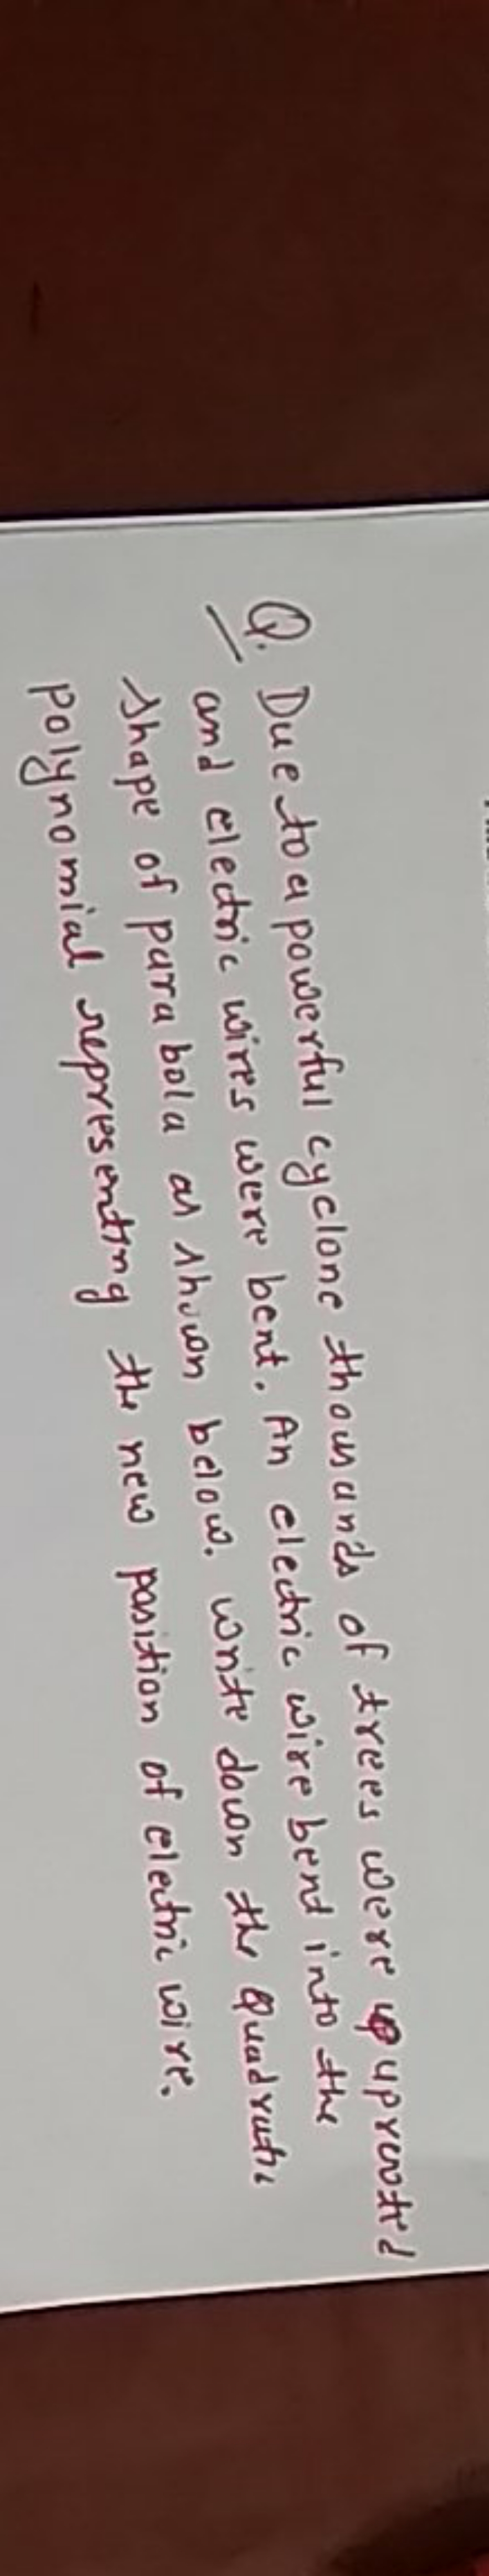 Q. Due to a powerful cyclone thousands of trees were uprooted
and electric wires were bent. An electric wire bend into the
shape of parabola as shown below. write down the Quadratic
polynomial representing the new position of electric wire.